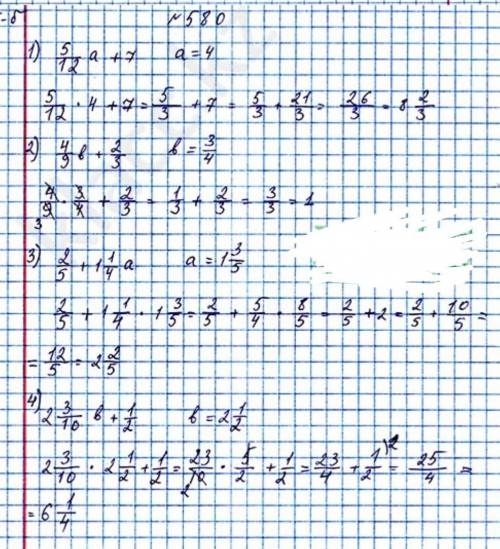 №580
1) 5/12 a + 7 a = 4
5/12 · 4 + 7 = 5/3 + 7 = 5/3 + 21/3 = 26/3 = 8 2/3
2) 4/9 в + 2/3 в = 3/4
4/9 · 3/4 + 2/3 = 1/3 + 2/3 = 3/3 = 1
3
3) 2/5 + 1 1/4 a a = 1 3/5
2/5 + 1 1/4 · 1 3/5 = 2/5 + 5/4 · 8/5 = 2/5 + 2 = 2/5 + 10/5 =
= 12/5 = 2 2/5
4) 2 3/10 в + 1/2 в = 2 1/2
2 3/10 · 2 1/2 + 1/2 = 23/10 · 5/2 + 1/2 = 23/4 + 1/2 = 25/4 =
= 6 1/4